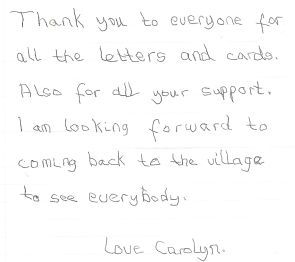 Thank you to everyone for
all the letters and cards.
Also for all your support.
I am looking forward to
coming back to the village
to see everybody.
Love Carolyn.